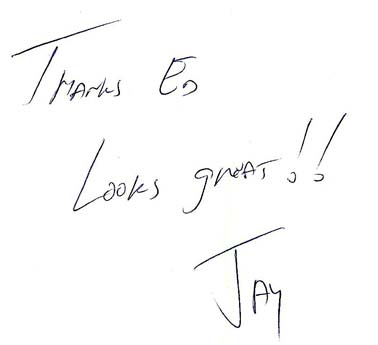 Thanks Ed
Looks great!!
Jay